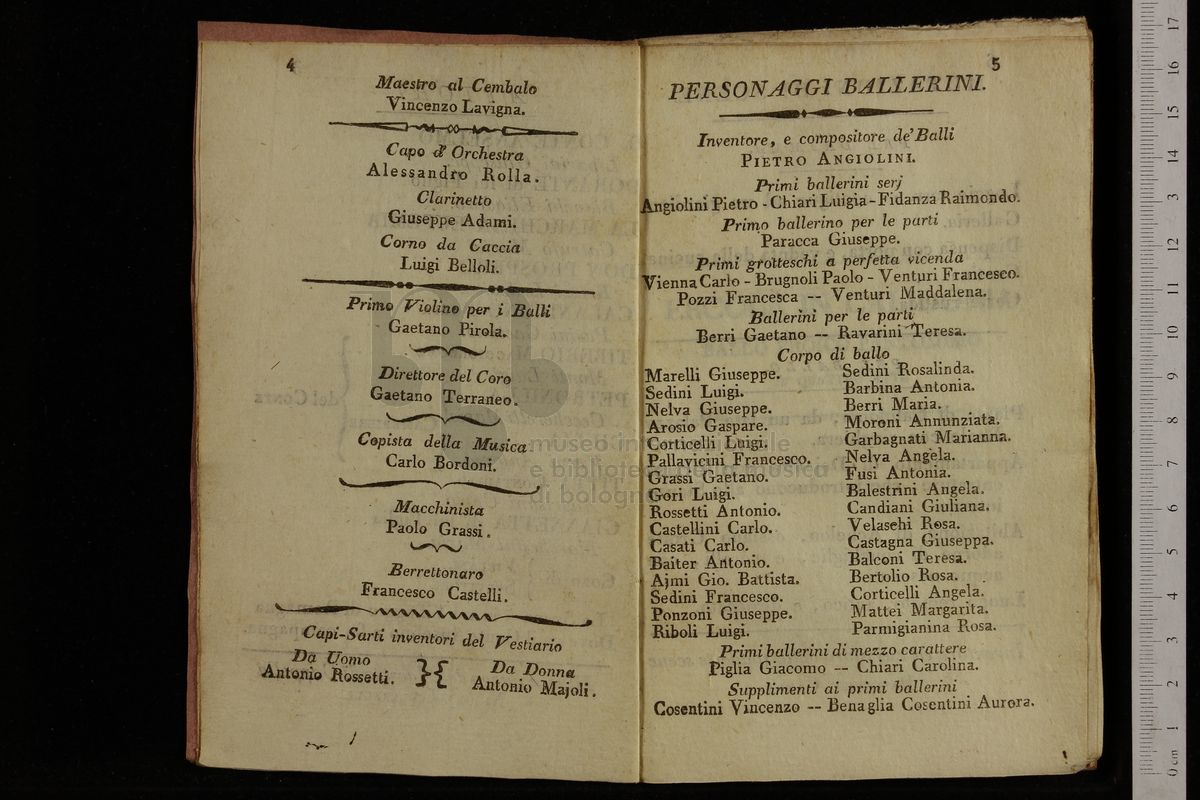 4
Maestro al Cembalo
Vincenzo Lavigna.
Capo d'Orchestra
Alessandro Rolla.
Clarinetto
Giuseppe Adami.
Corno da Caccia
Luigi Belloli.
Primo Violino per i Balli
Gaetano Pirola.
Direttore del Coro
Gaetano Terraneo.
Copista della Musica
Carlo Bordoni.
Macchinista
Paolo Grassi.
Berrettonaro
Francesco Castelli.
Capi-Sarti inventori del Vestiario
Da Uomo
Antonio Rossetti.
Da Donna
Antonio Majoli.
5
PERSONAGGI BALLERINI.
Inventore, e compositore de' Balli
PIETRO ANGIOLINI.
Primi ballerini serj
Angiolini Pietro - Chiari Luigia - Fidanza Raimondo.
Primo ballerino per le parti
Paracca Giuseppe.
Primi grotteschi a perfetta vicenda
Vienna Carlo - Brugnoli Paolo - Venturi Francesco.
Pozzi Francesca -- Venturi Maddalena.
Ballerini per le parti
Berri Gaetano -- Ravarini Teresa.
Corpo di ballo
Marelli Giuseppe.
Sedini Luigi.
Nelva Giuseppe.
Arosio Gaspare.
Corticelli Luigi.
Pallavicini Francesco.
Grassi Gaetano.
Gori Luigi.
Rossetti Antonio.
Castellini Carlo.
Casati Carlo.
Baiter Antonio.
Ajmi Gio. Battista.
Sedini Francesco.
Ponzoni Giuseppe.
Riboli Luigi.
Sedini Rosalinda.
Barbina Antonia.
Berri Maria.
Moroni Annunziata.
Garbagnati Marianna.
Nelva Angela.
Fusi Antonia.
Balestrini Angela.
Candiani Giuliana.
Velaschi Rosa.
Castagna Giuseppa.
Balconi Teresa.
Bertolio Rosa.
Corticelli Angela.
Mattei Margarita.
Parmigianina Rosa.
Primi ballerini di mezzo carattere
Piglia Giacomo -- Chiari Carolina.
Supplimenti ai primi ballerini
Cosentini Vincenzo -- Benaglia Cosentini Aurora.
museo internazionale
e biblioteca della musica
di bologna
0 cm 1 2 3 4 5 6 7 8 9 10 11 12 3 14 15 16 17